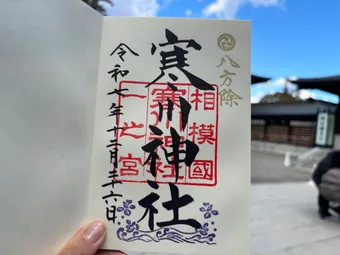 八方除
寒川神社
相模國
一之宮
寒川神社
令和七年十二月二十六日